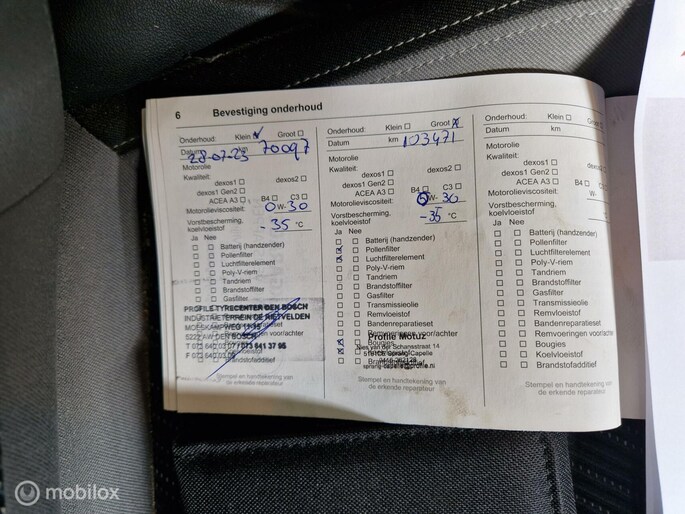 6 Bevestiging onderhoud
Onderhoud: Klein Groot
Datum km
28-07-23 70097
Motorolie
Kwaliteit:
dexos1 dexos2
dexos1 Gen2
ACEA A3 B4 C3
Motorolieviscositeit: 0 W- 30
Vorstbescherming,
koelvloeistof -35 °C
Ja Nee
Batterij (handzender)
Pollenfilter
Luchtfilterelement
Poly-V-riem
Tandriem
Brandstoffilter
Gasfilter
PROFILE TYRECENTER DEN BOSCH
INDUSTRIETERREIN DE RIETVELDEN
5222 AW DEN BOSCH
073 641 37 95
Brandstofadditief
Stempel en handtekening van
de erkende reparateur
Onderhoud: Klein Groot
Datum km 103471
Motorolie
Kwaliteit:
dexos1 dexos2
dexos1 Gen2
ACEA A3 B4 C3
Motorolieviscositeit: 0 W- 30
Vorstbescherming,
koelvloeistof -35 °C
Ja Nee
Batterij (handzender)
Pollenfilter
Luchtfilterelement
Poly-V-riem
Tandriem
Brandstoffilter
Gasfilter
Transmissieolie
Remvloeistof
Bandenreparatieset
Remvoeringen voor/achter
Profile Motuz
Bougies
Nies van der Schansstraat 14
Sprang-Capelle
sprang-capelle@profile.nl
Stempel en handtekening van
de erkende reparateur
Onderhoud: Klein
Datum km
Motorolie
Kwaliteit:
dexos1
dexos1 Gen2
ACEA A3
Motorolieviscositeit:
Vorstbescherming,
koelvloeistof
Ja Nee
Batterij (handzender)
Pollenfilter
Luchtfilterelement
Poly-V-riem
Tandriem
Brandstoffilter
Gasfilter
Transmissieolie
Remvloeistof
Bandenreparatieset
Remvoeringen voor/achter
Bougies
Koelvloeistof
Brandstofadditief
Stempel en handtekening van
de erkende reparateur
mobilox